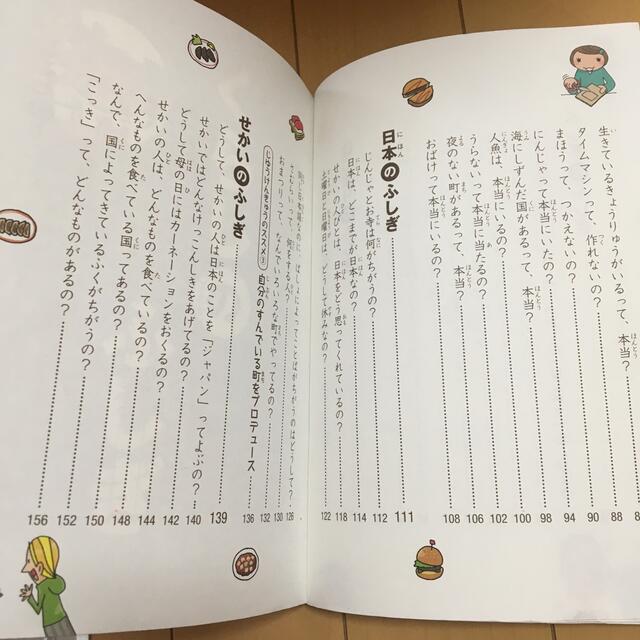 生きているきょうりゅうがいるって、本当? 8
タイムマシンって、作れないの? 88
まほうって、つかえないの? 90
にんじゃって本当にいたの? 94
海にしずんだ国があるって、本当? 98
人魚は、本当にいるの? 100
うらないって本当に当たるの? 102
夜のない町があるって、本当? 106
おばけって本当にいるの? 108
日本のふしぎ 111
じんじゃとお寺は何がちがうの? 112
日本は、どこまでが日本なの? 114
せかいの人びとは、日本をどう思ってくれているの? 118
土曜日と日曜日は、どうして休みなの? 122
同じ日本語なのに、ばしょによってことばがちがうのはどうして? 126
って、何をするの? 130
おまつりって、なんでいろいろな町でやってるの? 132
じゆうけんきゅうのススメ 自分のすんでいる町をプロデュース 136
せかいのふしぎ 139
どうして、せかいの人は日本のことを「ジャパン」ってよぶの? 140
せかいではどんなけっこんしきをあげてるの? 142
どうして母の日にはカーネーションをおくるの? 144
せかいの人は、どんなものを食べているの? 148
へんなものを食べている国ってあるの? 150
なんで、国によってきているふくがちがうの? 152
「こっき」って、どんなものがあるの? 156